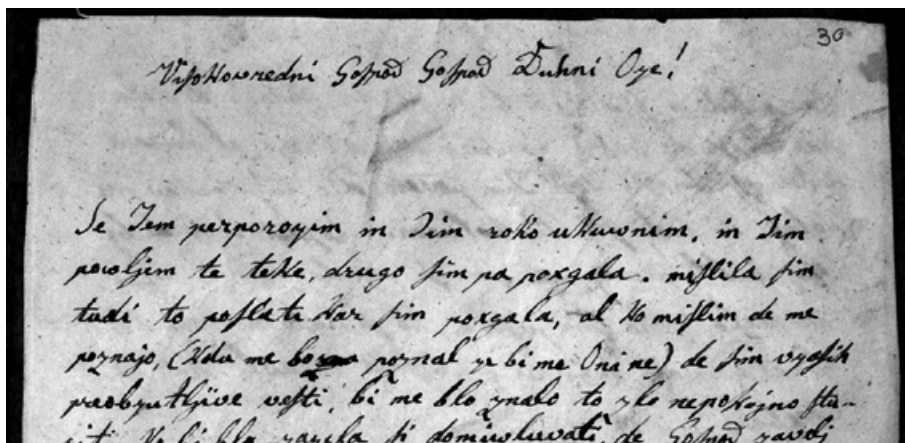 30
Visokovredni Gospod Gospod Duhni Oze!
Se Jem perporozim in Jim roko ukuvnim, in Jim
powljem te teke, drugo sim pa poxgala. mislila sim
tudi to poslati kar sim poxgala, al ko mislim de me
poznajo, (kdu me poznal ze bi me Oni ne) de sim vzasih
preobzutljive vesti, bi me blo znalo to zlo nepokojno stu-
de Gospod